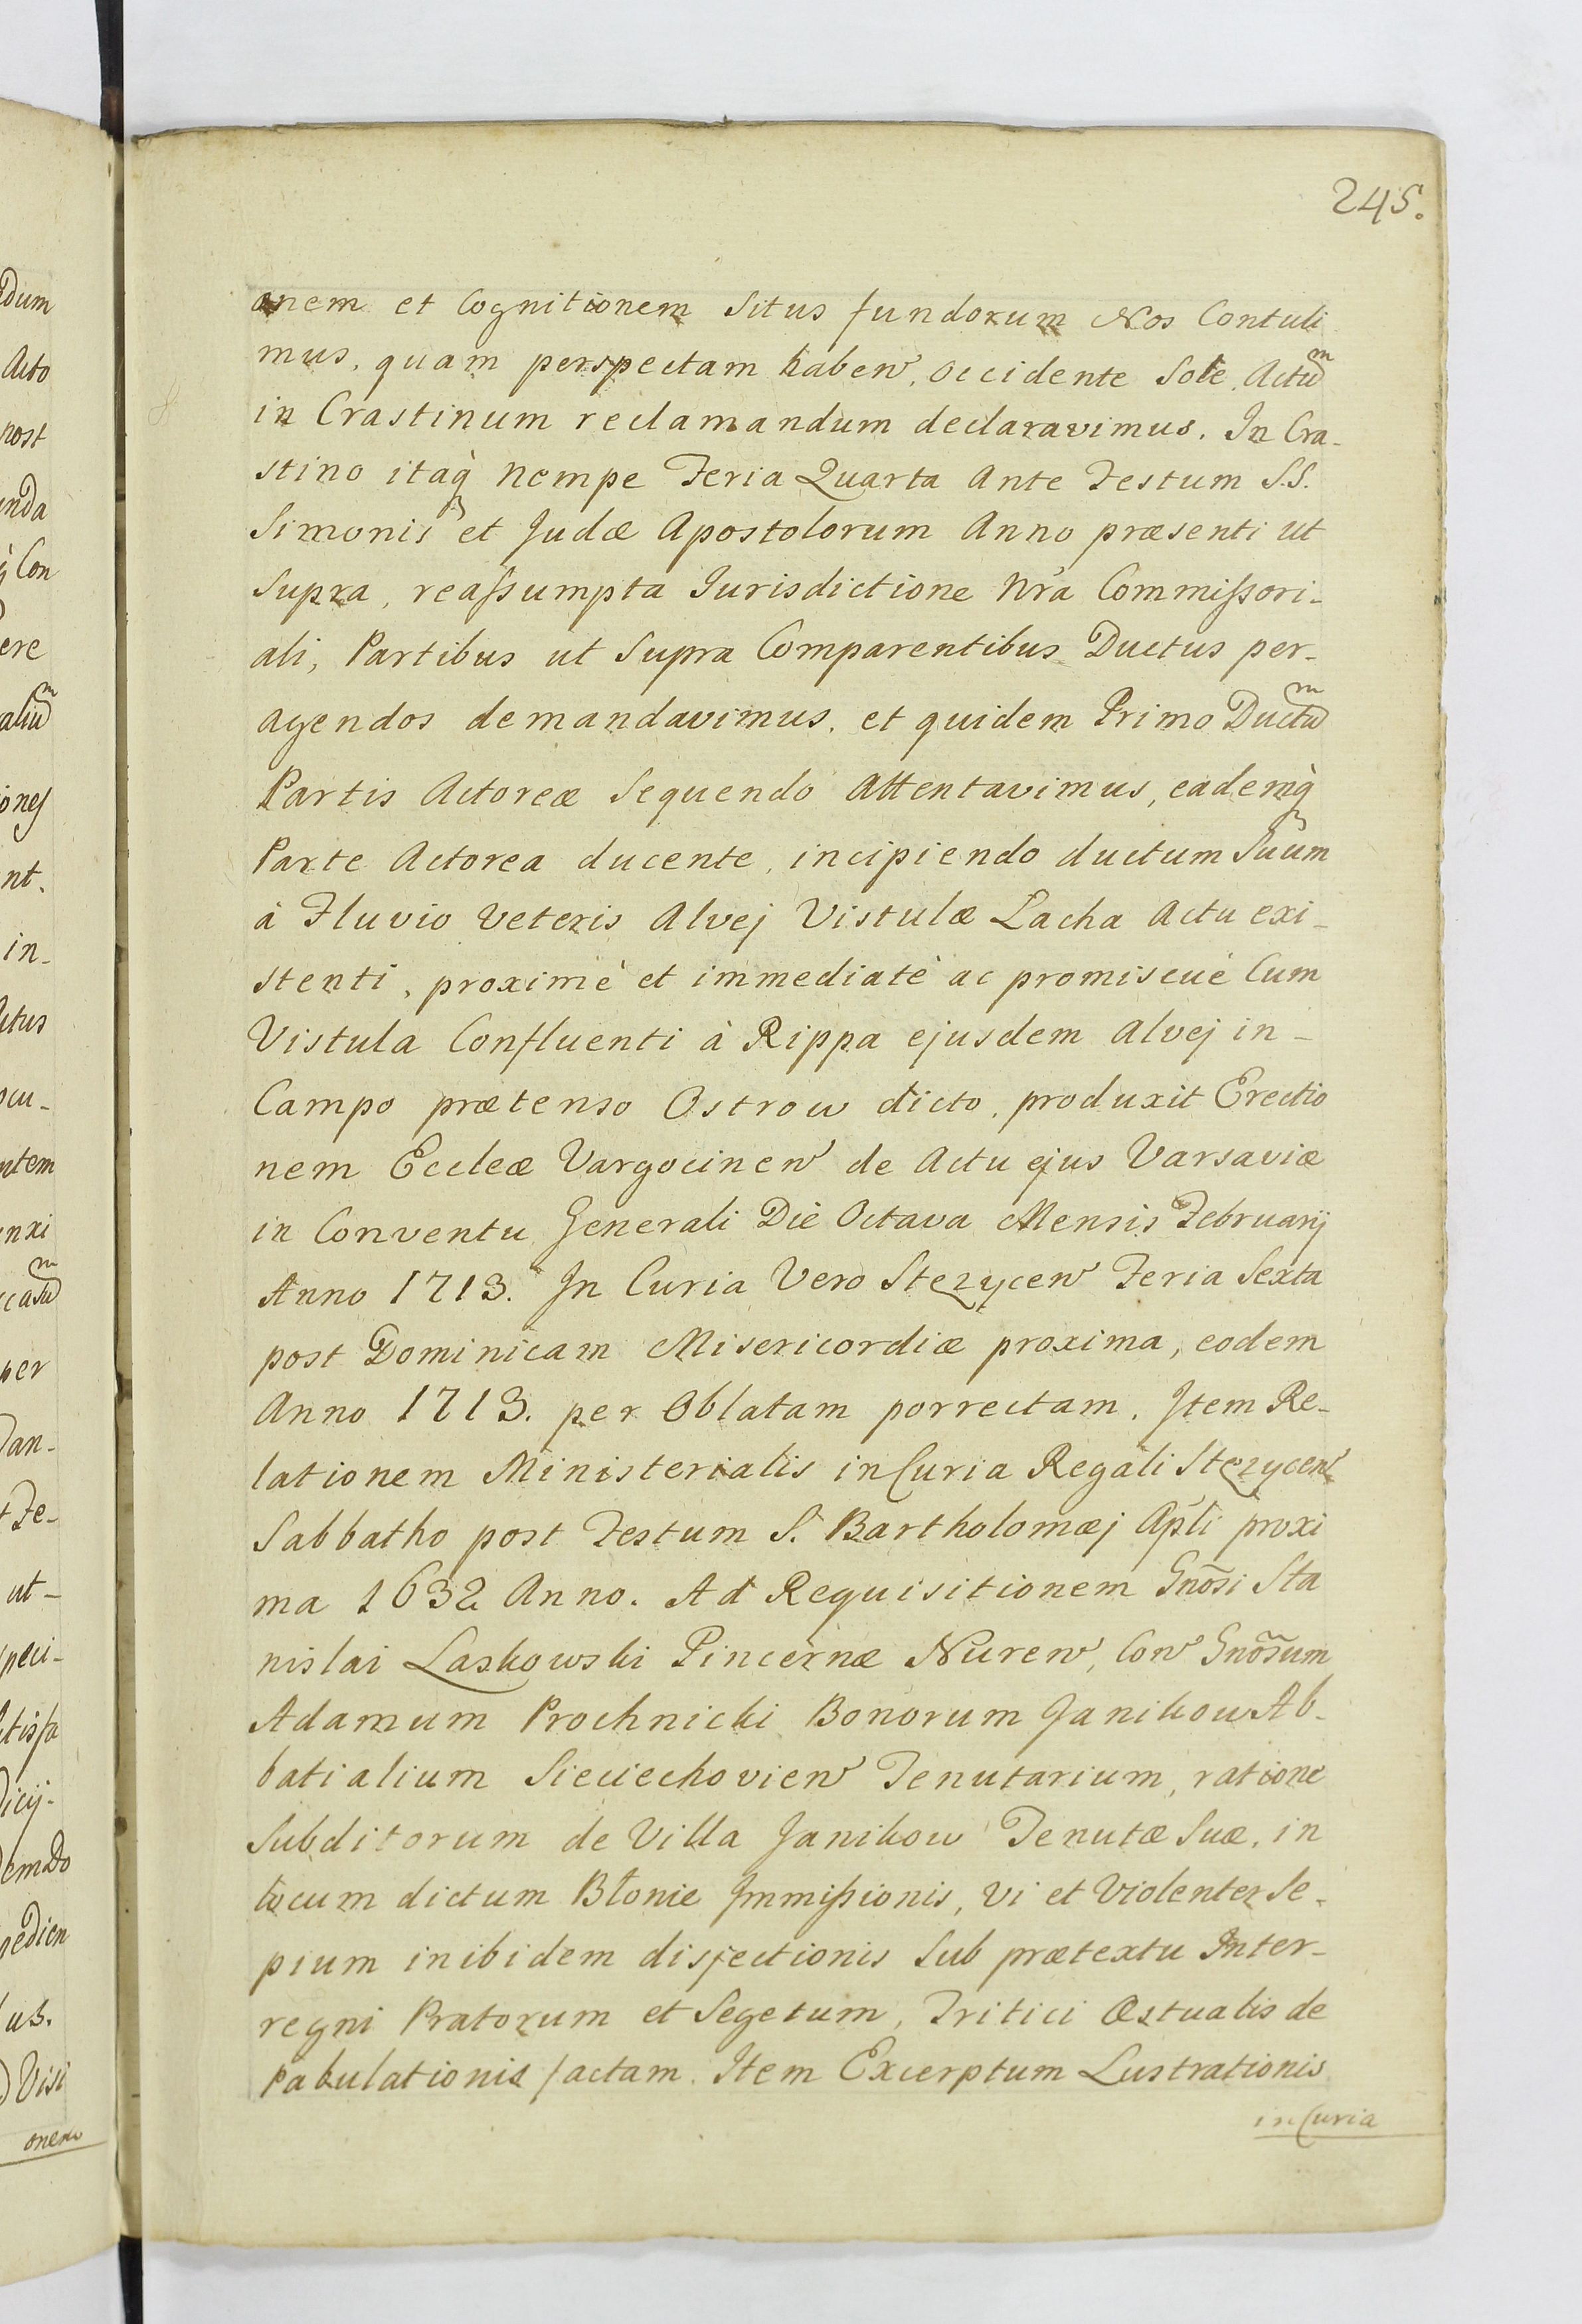 245.
onem et Cognitionem Situs fundorum Nos Contuli
mus, quam perspectam haben͠, occidente Sole, Actu͠m
in Crastinum reclamandum declaravimus. In Cra-
stino itaq̀ꝫ nempe Feria Quarta Ante Festum S.S.
Simonis et Judæ Apostolorum Anno præsenti ut
Supra, reaſsumpta Jurisdictione Nr̃a Commiſsori-
ali, Partibus ut Supra Comparentibus Ductus per-
agendos demandavimus, et quidem Primo Ductu͠m
Partis Actoreæ Sequendo Attentavimus, eademq̀ꝫ
Parte Actorea ducente, incipiendo ductum Suum
à Fluvio Veteris Alvej Vistulæ Łacha Actu exi-
stenti, proximè et immediatè ac promiscuè Cum
Vistula Confluenti à Rippa ejusdem Alvej in-
Campo prætenso Ostrow dicto, produxit Erectio
nem Eccleæ Vargocinen͠ de Actu ejus Varsaviæ
in Conventu Generali Die Octava Mensis Februarij
Anno 1713. In Curia Vero Stezycen͠ Feria Sexta
post Dominicam Misericordiæ proxima, eodem
Anno 1713. per Oblatam porrectam. Item Re-
lationem Ministerialis in Curia Regali Stezycen͠
Sabbatho post Festum S. Bartholomæj Apl̃i proxi
ma 1632 Anno. Ad Requisitionem Gnõsi Sta
nislai Laskowski Pincernæ Nuren͠, Con͠ Gnõsum
Adamum Prochnicki Bonorum Janikow Ab-
batialium Sieciechovien͠ Tenutarium, ratione
Subditorum de Villa Janikow Tenutæ Suæ, in
locum dictum Błonie Immiſsionis, vi et Violenter Se-
pium inibidem disjectionis Sub prætextu Inter-
regni Pratorum et Segetum, Tritici Æstualis de
pabulationis factam. Item Excerptum Lustrationis
in Curia
dum
Acto
post
Con
ere
ones
nt.
in-
ntem
per
ut-
Visi
onem